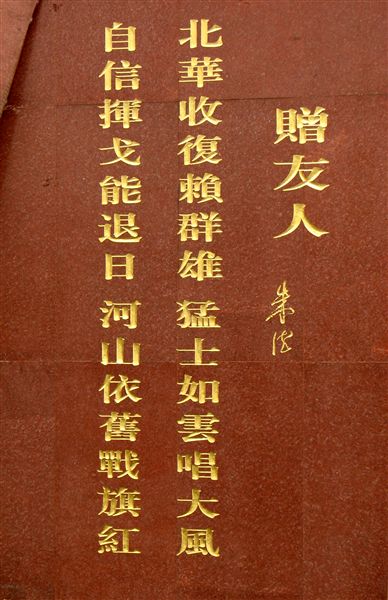 贈友人
朱德
北華收復賴群雄 猛士如雲唱大風
自信揮戈能退日 河山依舊戰旗紅